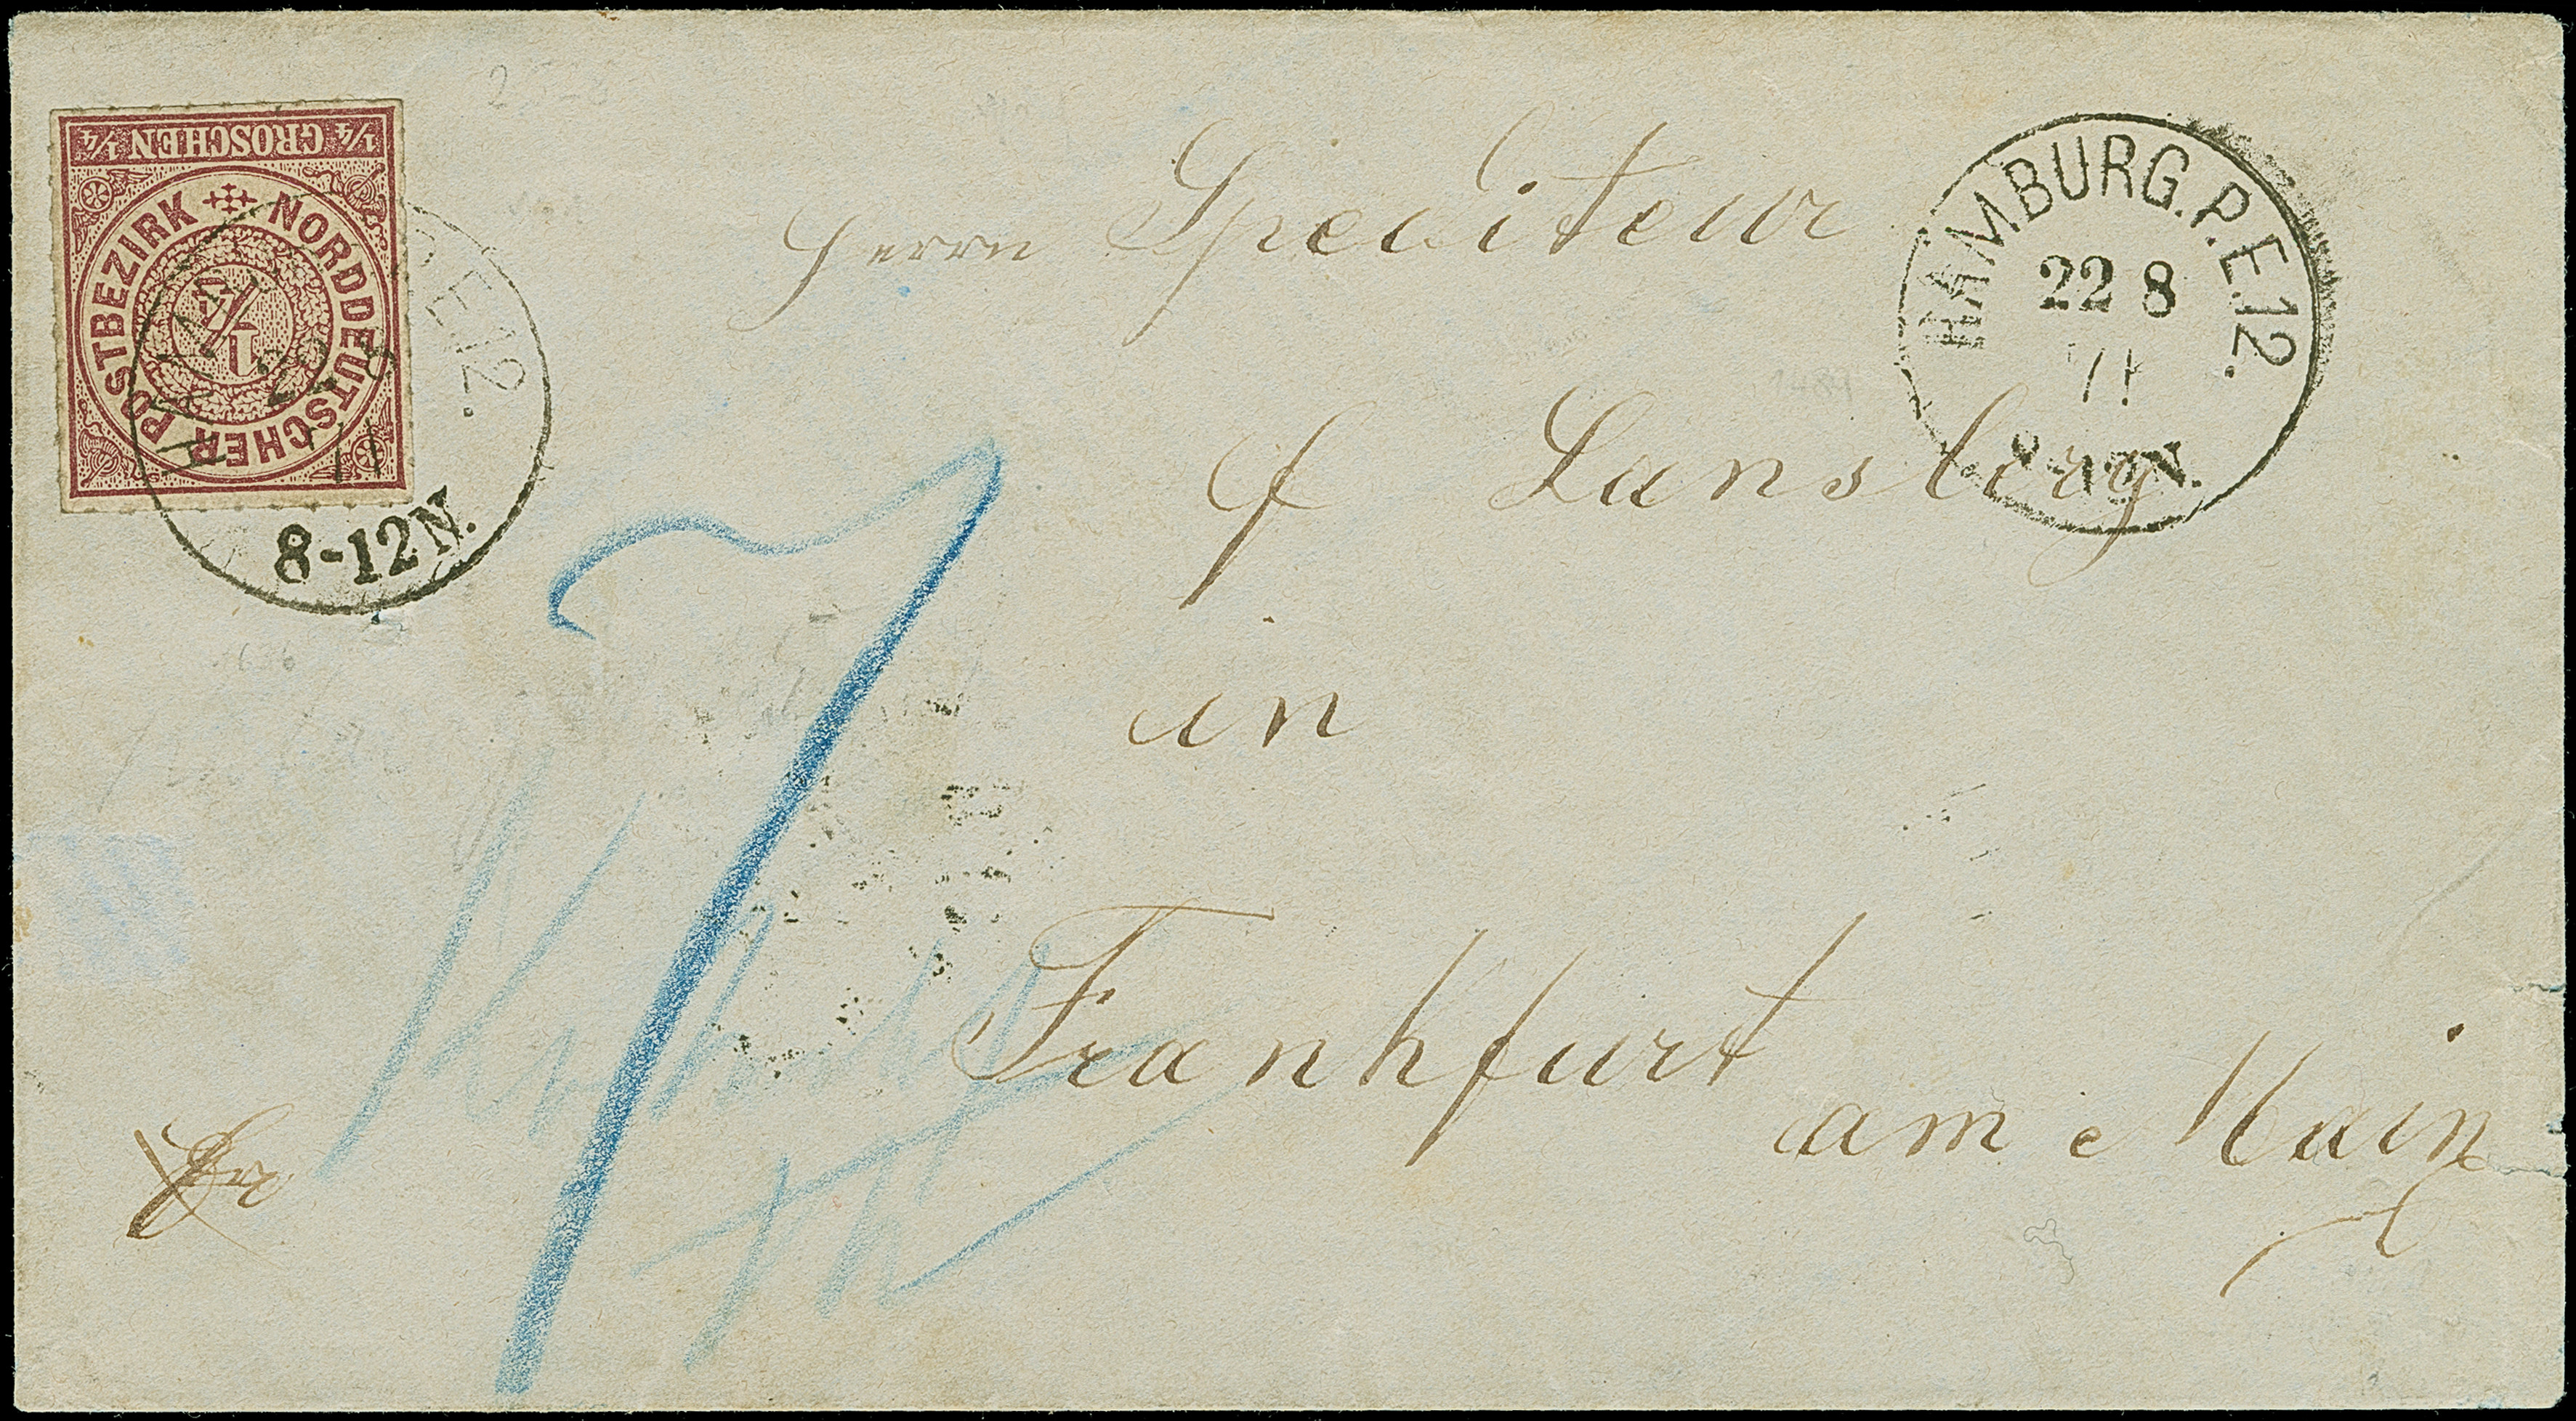 ¼ GROSCHEN ¼
NORDDEUTSCHER POSTBEZIRK
¼
HAMBURG.P.E.12.
22 8
71
8-12N.
HAMBURG.P.E.12.
22 8
71
8-12N.
Herrn Spediteur
Lansberg
in
Frankfurt
am Main